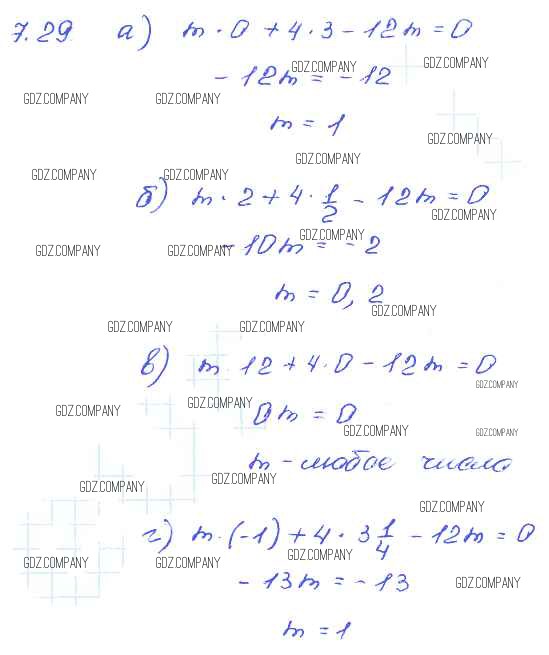 7.29 а) m · 0 + 4 · 3 - 12m = 0
GDZ.COMPANY GDZ.COMPANY
- 12m = - 12
GDZ.COMPANY GDZ.COMPANY
m = 1
GDZ.COMPANY
GDZ.COMPANY
GDZ.COMPANY GDZ.COMPANY
б) m · 2 + 4 · 1/2 - 12m = 0
GDZ.COMPANY
GDZ.COMPANY
- 10m = - 2
GDZ.COMPANY GDZ.COMPANY
m = 0,2
GDZ.COMPANY
GDZ.COMPANY GDZ.COMPANY
в) m · 12 + 4 · 0 - 12m = 0
GDZ.COMPANY
GDZ.COMPANY GDZ.COMPANY
0m = 0
GDZ.COMPANY GDZ.COMPANY
m - любое число
GDZ.COMPANY GDZ.COMPANY
GDZ.COMPANY
г) m · (-1) + 4 · 3 1/4 - 12m = 0
GDZ.COMPANY GDZ.COMPANY GDZ.COMPANY
- 13m = - 13
GDZ.COMPANY
m = 1